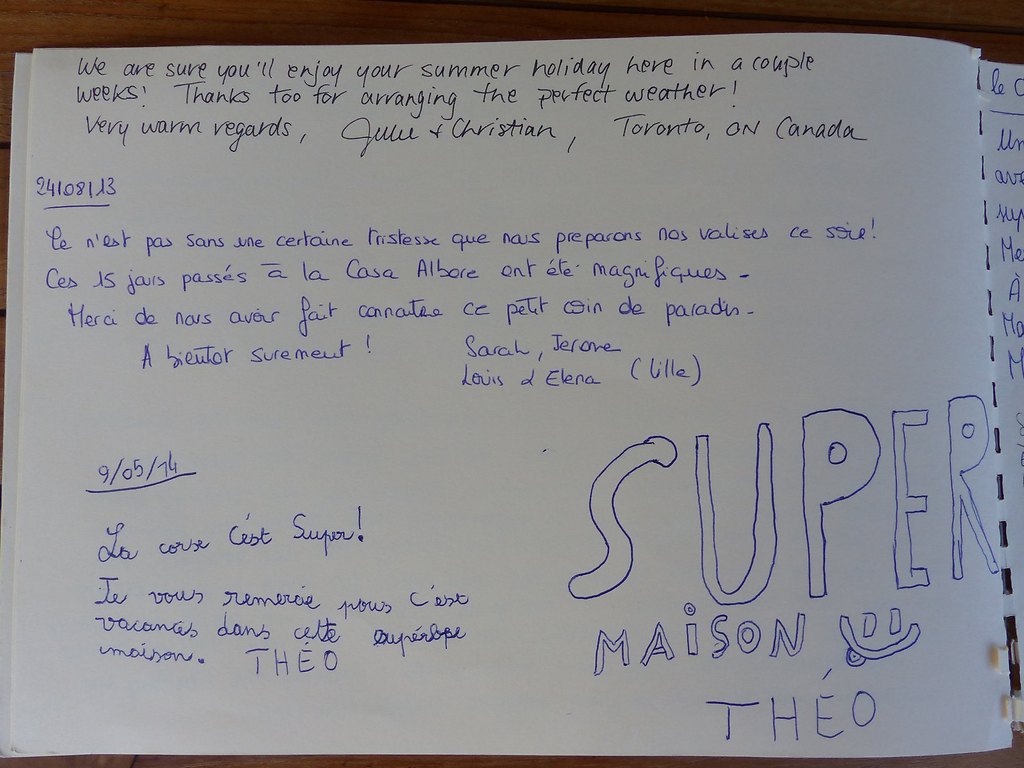 We are sure you'll enjoy your summer holiday here in a couple
weeks! Thanks too for arranging the perfect weather!
Very warm regards, Julie & Christian, Toronto, ON Canada
24/08/13
Ce n'est pas sans une certaine tristesse que nous preparons nos valises ce soir!
Ces 15 jours passés à la Casa Albore ont été magnifiques -
Merci de nous avoir fait connaitre ce petit coin de paradis -
A bientot surement !
Sarah, Jerome
Louis & Elena (Lille)
9/05/14
La corse C'est Super!
Je vous remercie pour c'est
vacances dans cette superbe
maison. THÉO
SUPER
MAiSON
THÉO
le C
Un
ava
sup
Me
À
Ma
M